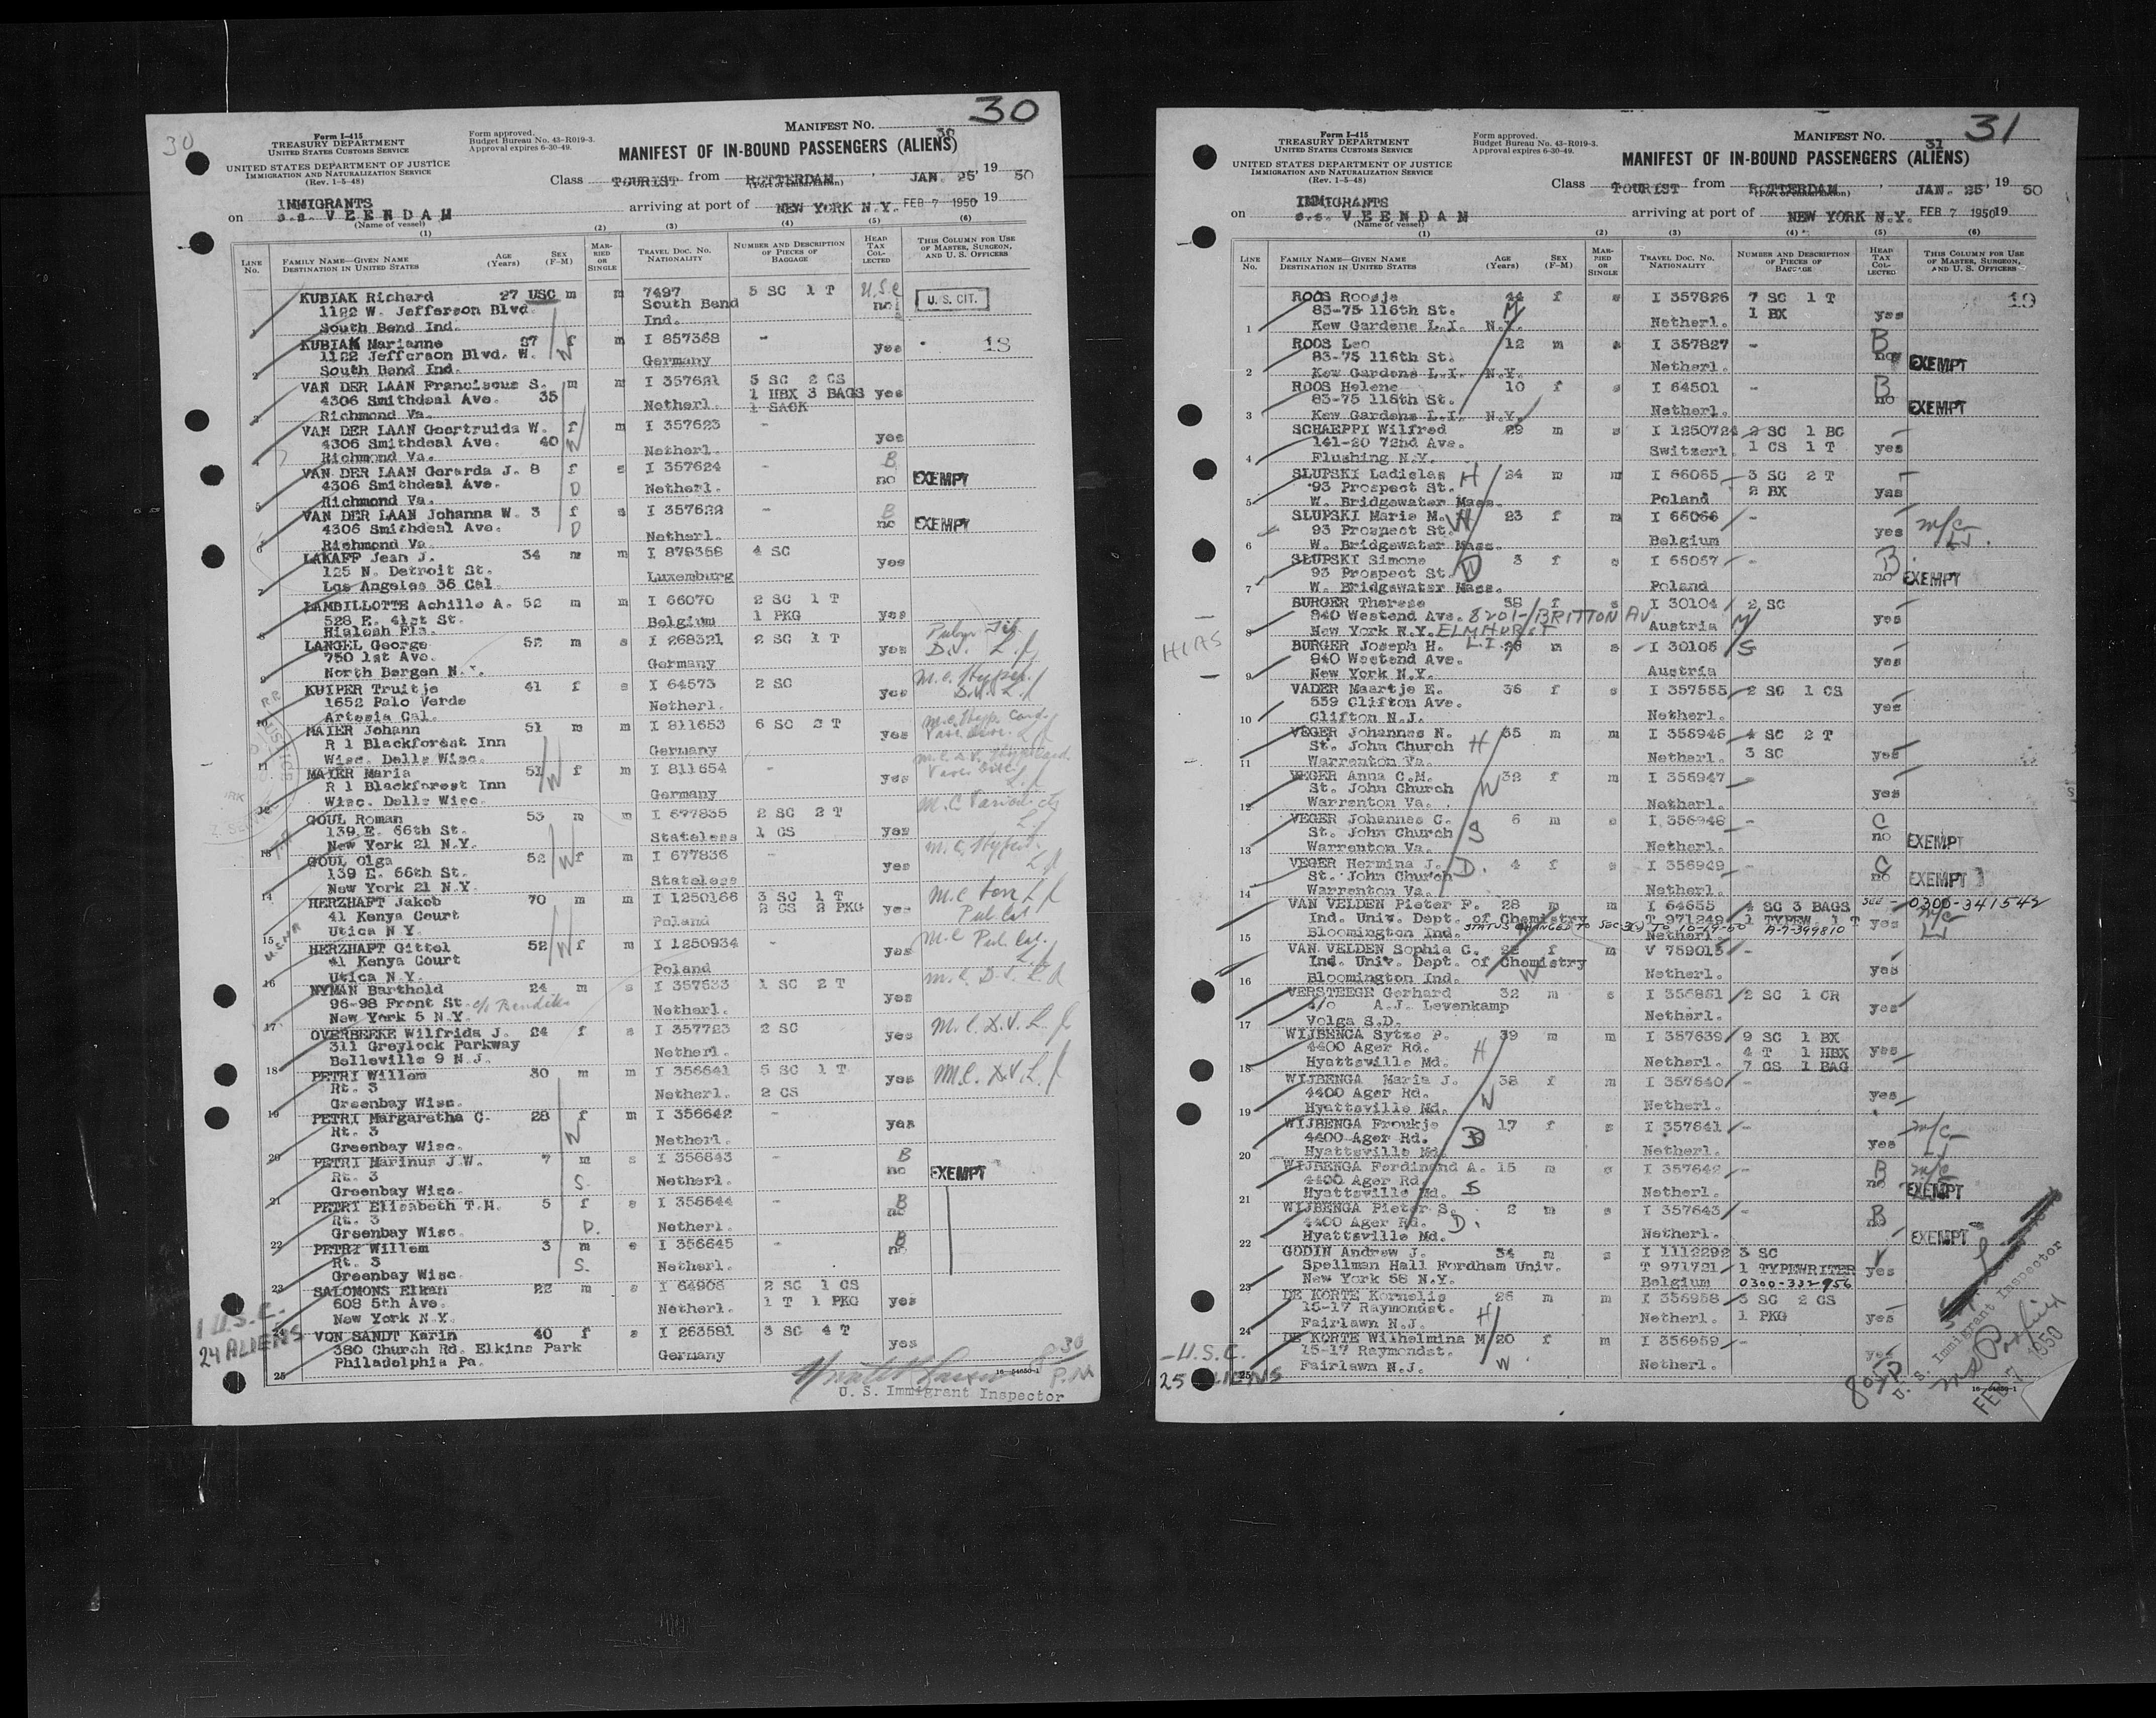 30
30
Form I-415
TREASURY DEPARTMENT
UNITED STATES CUSTOMS SERVICE
UNITED STATES DEPARTMENT OF JUSTICE
IMMIGRATION AND NATURALIZATION SERVICE
(Rev. 1-5-48)
Form approved.
Budget Bureau No. 43-R019-3.
Approval expires 6-30-49.
MANIFEST NO. 30
MANIFEST OF IN-BOUND PASSENGERS (ALIENS)
Class TOURIST from ROTTERDAM, JAN. 25, 19 50
(Port of embarkation)
IMMIGRANTS
on s.s. VEENDAM arriving at port of NEW YORK N.Y. FEB 7 1950 19
(Name of vessel)
(1) (2) (3) (4) (5) (6)
LINE NO. FAMILY NAME—GIVEN NAME DESTINATION IN UNITED STATES AGE (Years) SEX (F-M) MARRIED OR SINGLE TRAVEL DOC. NO. NATIONALITY NUMBER AND DESCRIPTION OF PIECES OF BAGGAGE HEAD TAX COLLECTED THIS COLUMN FOR USE OF MASTER, SURGEON, AND U. S. OFFICERS
KUBIAK Richard 27 USC m m 7497 5 SC 1 T U.S.C
1122 W. Jefferson Blvd. South Bend no U. S. CIT.
1 South Bend Ind. Ind.
KUBIAK Marianne 27 f m I 857368 -
1122 Jefferson Blvd. W. W yes 18
2 South Bend Ind. Germany
VAN DER LAAN Franciscus S. m m I 357621 5 SC 2 CS
4306 Smithdeal Ave. 35 1 HBX 3 BAGS yes
3 Richmond Va. Netherl. 1 SACK
VAN DER LAAN Geertruida W. f m I 357623 -
4306 Smithdeal Ave. 40 W yes
4 Richmond Va. Netherl.
VAN DER LAAN Gerarda J. 8 f s I 357624 - B
4306 Smithdeal Ave. D Netherl. no EXEMPT
5 Richmond Va.
VAN DER LAAN Johanna W. 3 f s I 357622 - B
4306 Smithdeal Ave. D no EXEMPT
6 Richmond Va. Netherl.
LAKAFF Jean J. 34 m m I 878358 4 SC
125 N. Detroit St. yes
7 Los Angeles 36 Cal. Luxemburg
LAMBILLOTTE Achille A. 52 m m I 66070 2 SC 1 T
528 E. 41st St. Belgium 1 PKG yes
8 Hialeah Fla.
LANGEL George 52 m s I 268321 2 SC 1 T
750 1st Ave. yes D.V.
9 North Bergen N.Y. Germany
KUIPER Truitje 41 f s I 64573 2 SC
1652 Palo Verde yes
10 Artesia Cal. Netherl.
MAIER Johann 51 m m I 811653 6 SC 2 T
R 1 Blackforest Inn yes
11 Wisc. Dells Wisc. Germany
MAIER Maria 51 W f m I 811654 -
R 1 Blackforest Inn yes
12 Wisc. Dells Wisc. Germany
GOUL Roman 53 m m I 677835 2 SC 2 T
139 E. 66th St. 1 CS yes
13 New York 21 N.Y. Stateless
GOUL Olga 52 W f m I 677836 -
139 E. 66th St. yes
14 New York 21 N.Y. Stateless
HERZHAFT Jakob 70 m m I 1250166 3 SC 1 T
41 Kenya Court Poland 2 CS 2 PKG yes
15 Utica N Y.
HERZHAFT Gittel 52 W f m I 1250934 -
41 Kenya Court yes
16 Utica N.Y. Poland
NYMAN Barthold 24 m s I 357533 1 SC 2 T
96-98 Front St. yes
17 New York 5 N.Y. Netherl.
OVERBEEKE Wilfrida J. 24 f s I 357723 2 SC
311 Greylock Parkway yes M.C. D.V.
18 Belleville 9 N.J. Netherl.
PETRI Willem 30 m m I 356641 5 SC 1 T
Rt. 3 yes M.C. D.V.
19 Greenbay Wisc. Netherl. 2 CS
PETRI Margaretha C. 28 f m I 356642 -
Rt. 3 W yes
20 Greenbay Wisc. Netherl.
PETRI Marinus J.W. 7 m s I 356643 - B
Rt. 3 S. Netherl. no EXEMPT
21 Greenbay Wisc.
PETRI Elisabeth T.H. 5 f s I 356644 - B
Rt. 3 D. no
22 Greenbay Wisc. Netherl.
PETRI Willem 3 m s I 356645 - B
Rt. 3 S. Netherl. no
23 Greenbay Wisc.
SALOMONS Elkan 22 m s I 64906 2 SC 1 CS
608 5th Ave. 1 T 1 PKG yes
24 New York N.Y. Netherl.
VON SANDT Karin 40 f s I 263581 3 SC 4 T
380 Church Rd. Elkins Park yes
25 Philadelphia Pa. Germany
1 U.S.C.
24 ALIENS
U. S. Immigrant Inspector
8 30 P.M
31
Form I-415
TREASURY DEPARTMENT
UNITED STATES CUSTOMS SERVICE
UNITED STATES DEPARTMENT OF JUSTICE
IMMIGRATION AND NATURALIZATION SERVICE
(Rev. 1-5-48)
Form approved.
Budget Bureau No. 43-R019-3.
Approval expires 6-30-49.
MANIFEST NO. 31
MANIFEST OF IN-BOUND PASSENGERS (ALIENS)
Class TOURIST from ROTTERDAM, JAN. 25, 19 50
(Port of embarkation)
IMMIGRANTS
on s.s. VEENDAM arriving at port of NEW YORK N.Y. FEB 7 1950 19
(Name of vessel)
(1) (2) (3) (4) (5) (6)
LINE NO. FAMILY NAME—GIVEN NAME DESTINATION IN UNITED STATES AGE (Years) SEX (F-M) MARRIED OR SINGLE TRAVEL DOC. NO. NATIONALITY NUMBER AND DESCRIPTION OF PIECES OF BAGGAGE HEAD TAX COLLECTED THIS COLUMN FOR USE OF MASTER, SURGEON, AND U. S. OFFICERS
ROOS Roosje 44 f s I 357826 7 SC 1 T 19
83-75 116th St. M 1 BX yes
1 Kew Gardens L.I. N.Y. Netherl.
ROOS Leo 12 m s I 357827 - B
83-75 116th St. no EXEMPT
2 Kew Gardens L.I. N.Y. Netherl.
ROOS Helene 10 f s I 64501 - B
83-75 116th St. no EXEMPT
3 Kew Gardens L.I. N.Y. Netherl.
SCHAEPPI Wilfred 29 m s I 1250724 2 SC 1 BG
141-20 72nd Ave. 1 CS 1 T yes
4 Flushing N.Y. Switzerl.
SLUPSKI Ladislas H 24 m m I 66065 3 SC 2 T
93 Prospect St. 2 BX yes
5 W. Bridgewater Mass. Poland
SLUPSKI Marie M. W 23 f m I 66066 -
93 Prospect St. yes m/c
6 W. Bridgewater Mass. Belgium
SLUPSKI Simone 3 f s I 66067 - B
93 Prospect St. D no EXEMPT
7 W. Bridgewater Mass. Poland
BURGER Therese 58 f s I 30104 2 SC
840 Westend Ave. 8201 BRITTON AV M yes
8 New York N.Y. ELMHURST L.I. Austria
BURGER Joseph H. 26 m s I 30105 S
840 Westend Ave. yes
9 New York N.Y. Austria
HIAS
VADER Maartje E. 36 f s I 357555 2 SC 1 CS
559 Clifton Ave. yes
10 Clifton N.J. Netherl.
VEGER Johannes N. 35 m m I 356946 4 SC 2 T
St. John Church H 3 SC yes
11 Warrenton Va. Netherl.
VEGER Anna C.M. 32 f m I 356947 -
St. John Church W yes
12 Warrenton Va. Netherl.
VEGER Johannes C. 6 m s I 356948 - C
St. John Church S no EXEMPT
13 Warrenton Va. Netherl.
VEGER Hermina J. D. 4 f s I 356949 - C
St. John Church no EXEMPT
14 Warrenton Va. Netherl.
VAN VELDEN Pieter F. 28 m m I 64655 4 SC 3 BAGS SEE - 0300-341542
Ind. Univ. Dept. of Chemistry T 971249 1 TYPEW. 1 T yes m/c
15 Bloomington Ind. STATUS CHANGED TO SEC 3 10-19-50 Netherl. A-7-399810
VAN VELDEN Sophia C. f m V 759015 -
Ind. Univ. Dept. of Chemistry yes
16 Bloomington Ind. W Netherl.
VERSTEEGE Gerhard 32 m s I 356861 2 SC 1 CR
c/o A.J. Levenkamp yes
17 Volga S.D. Netherl.
WIJBENGA Sytze P. 39 m m I 357639 9 SC 1 BX
4400 Ager Rd. H 4 T 1 HBX yes
18 Hyattsville Md. Netherl. 7 CS 1 BAG
WIJBENGA Maria J. 38 f m I 357640 -
4400 Ager Rd. W yes
19 Hyattsville Md. Netherl.
WIJBENGA Froukje 17 f s I 357641 - m/c
4400 Ager Rd. D yes
20 Hyattsville Md. Netherl.
WIJBENGA Ferdinand A. 15 m s I 357642 - B m/c
4400 Ager Rd. no EXEMPT
21 Hyattsville Md. S Netherl.
WIJBENGA Pieter S. 2 m s I 357643 - B
4400 Ager Rd. D. no EXEMPT
22 Hyattsville Md. Netherl.
GODIN Andrew J. 34 m s I 1112292 3 SC
Spellman Hall Fordham Univ. T 971721 1 TYPEWRITER yes
23 New York 58 N.Y. Belgium 0300-332956
DE KORTE Kornelis 26 m m I 356958 3 SC 2 CS
15-17 Raymondst. H 1 PKG yes
24 Fairlawn N.J. Netherl.
DE KORTE Wilhelmina M 20 f m I 356959 -
15-17 Raymondst. W. yes
25 Fairlawn N.J. Netherl.
- U.S.C.
25 ALIENS
U. S. Immigrant Inspector
FEB 7 1950